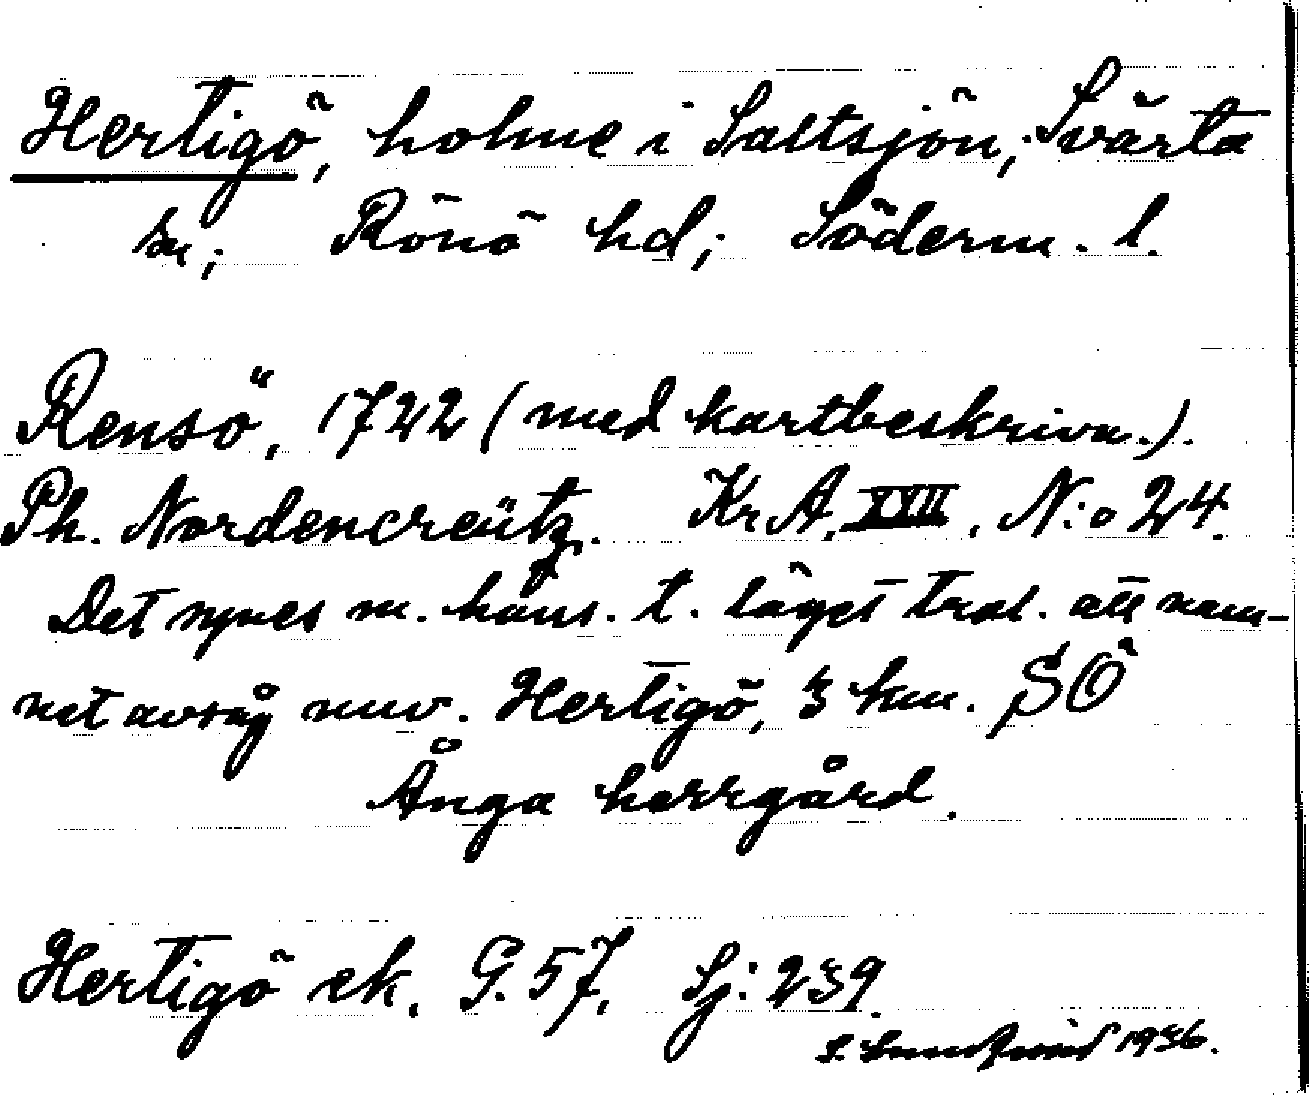 Hertigö, holme i Saltsjön, Svärta
sn; Rönö hd; Söderm. l.
Rensö, 1722 (med kartbeskrivn.).
Ph. Nordencreütz. KrA, XXII, N:o 24.
Det synes m. häns. t. läget trol. att nam-
net avsåg nuv. Hertigö, 3 km. SÖ
Ånga herrgård.
Hertigö ek. G. 57, Sj: 239.
1936.